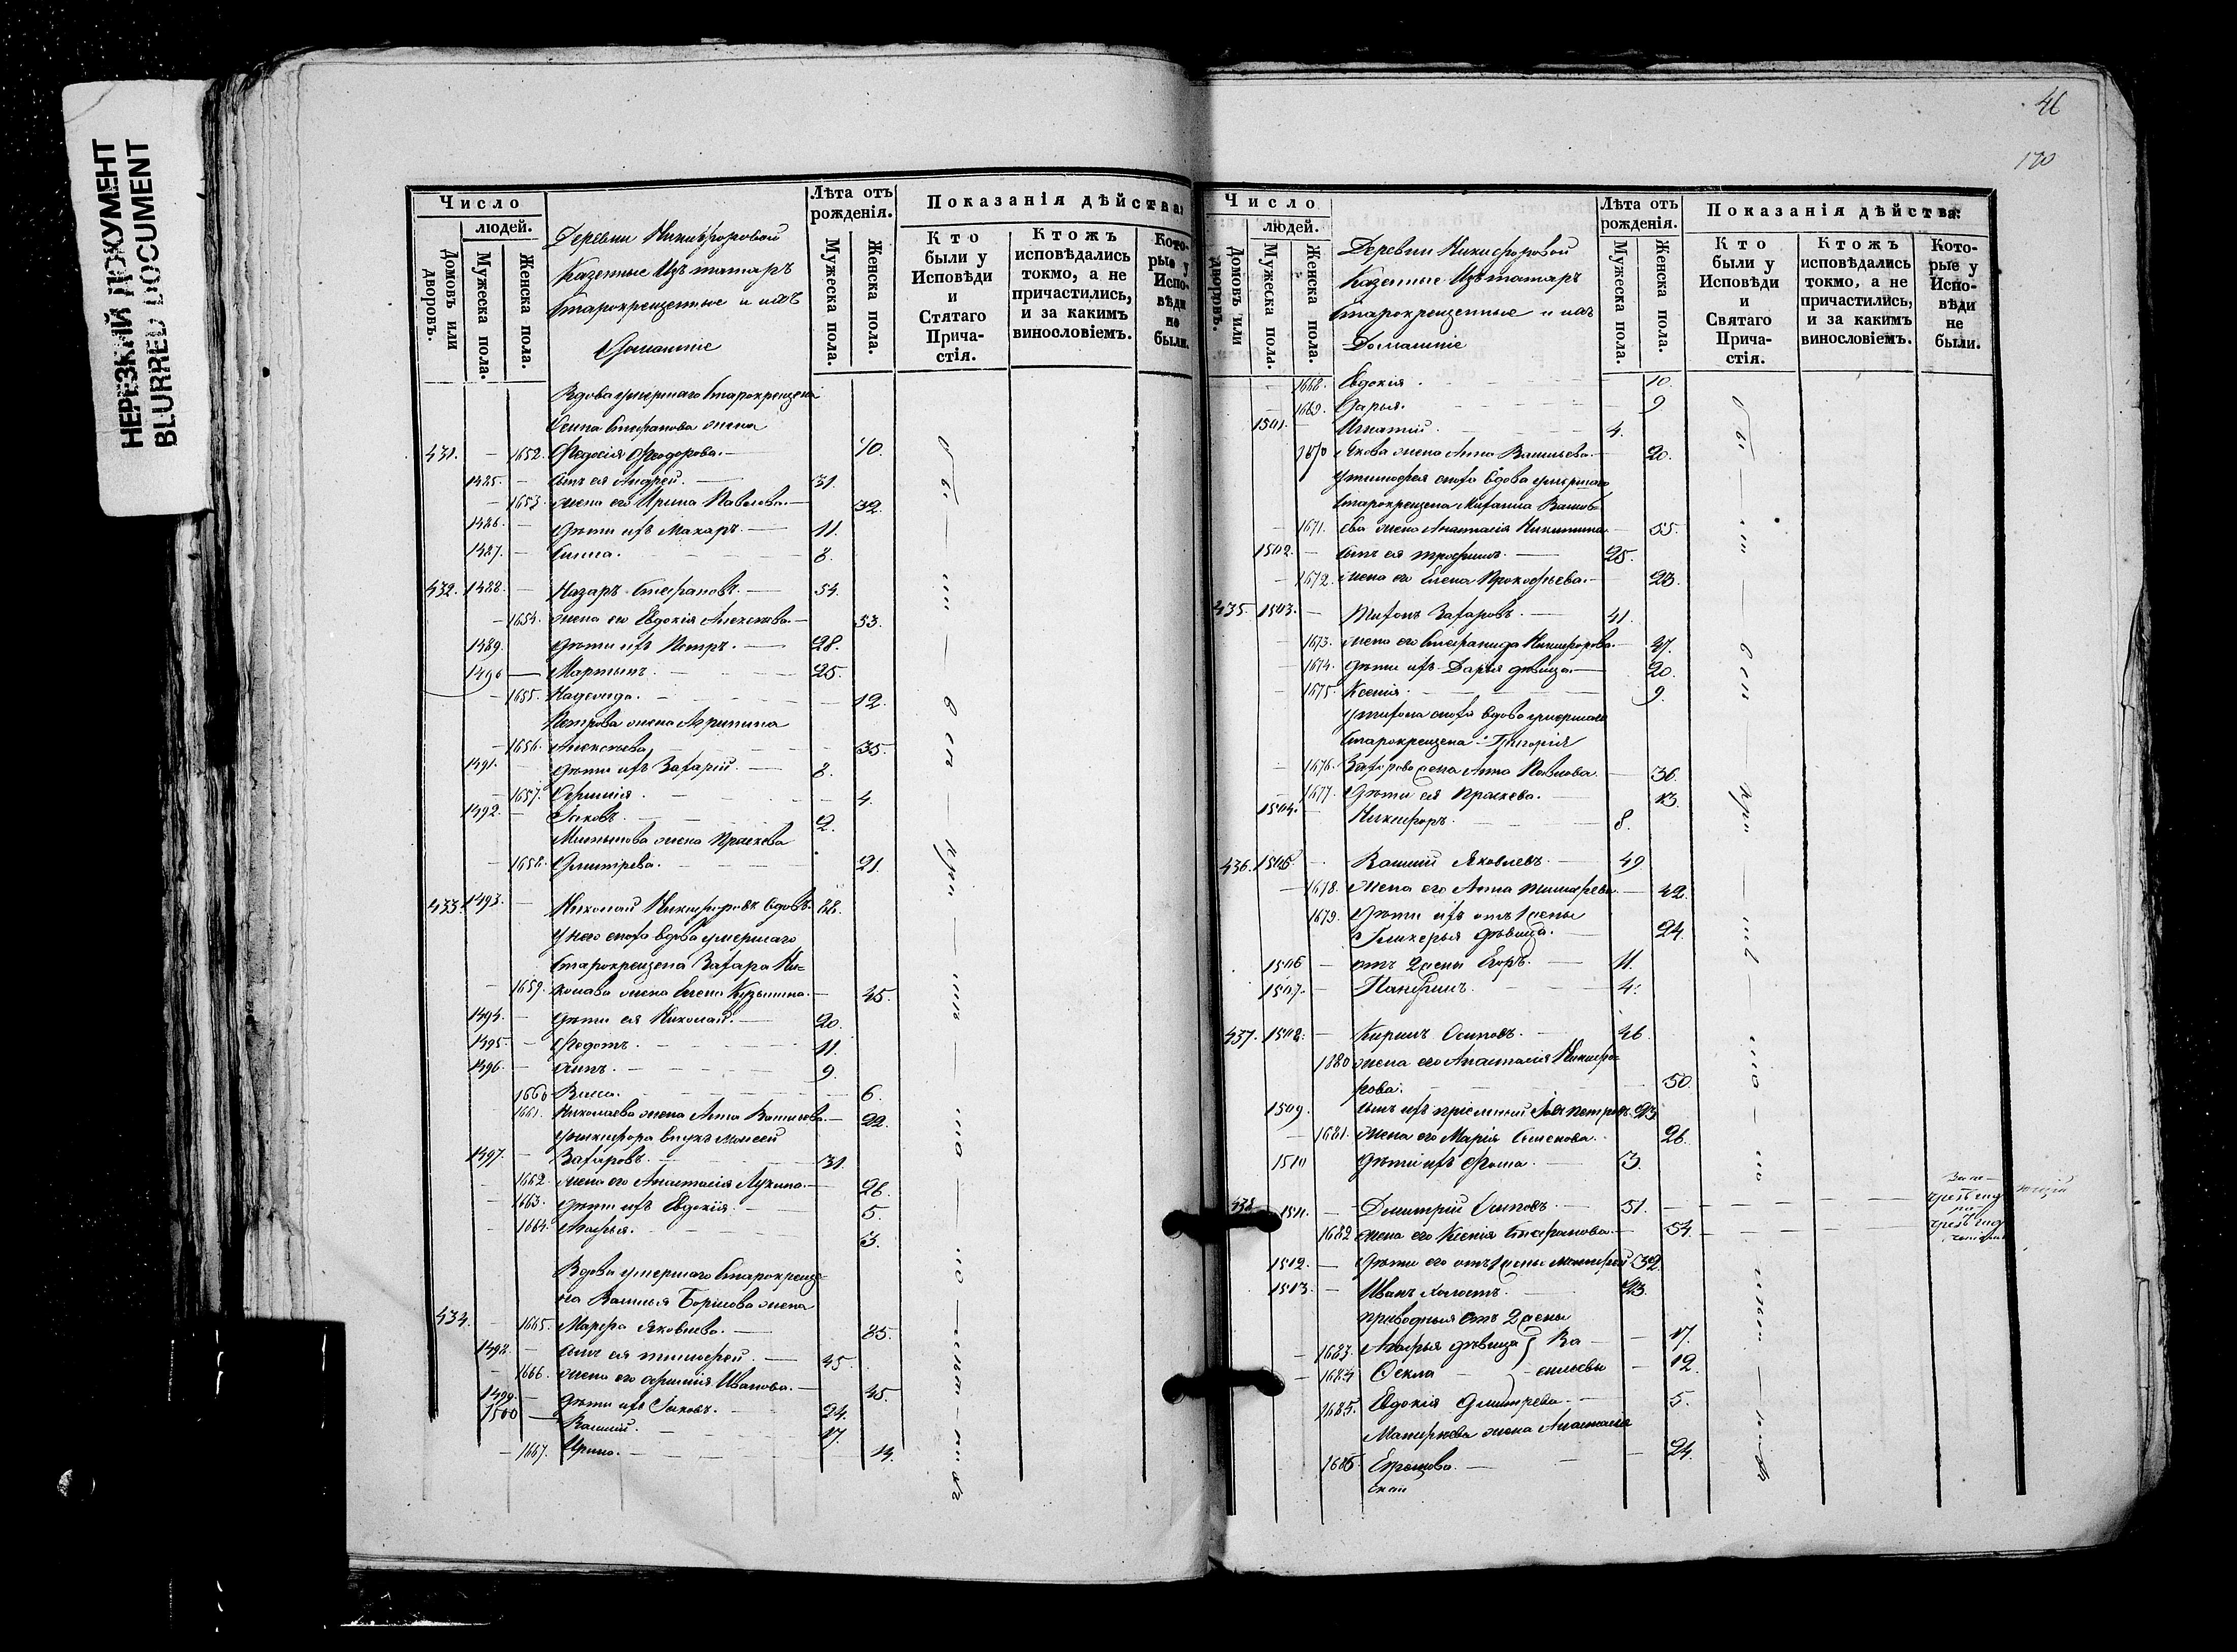 НЕРЕЗКИЙ ДОКУМЕНТ
BLURRED DOCUMENT
Число
людей.
Домовъ или дворовъ.
Мужеска пола.
Женска пола.
Деревни Никифоровой
Казенные Изъ татаръ
Старокрещенные и ихъ
Домашніе
Лѣта отъ рожденія.
Мужеска пола.
Женска пола.
Показанія дѣйства:
Кто были у Исповѣди и Статаго Прича- стія.
Ктожъ исповѣдались токмо, а не причастились, и за какимъ винословіемъ.
Кото- рые у Испо- вѣди не были.
Вдова умершаго Старокрещена
Осипа Стефанова жена
431. 1652. Федосія Феодорова. 70.
1485. сынъ ея Андрей. 31.
1653. жена его Ирина Павлова. 32.
1486. дѣти ихъ Макаръ. 11.
1487. 8.
432. 1488. Назаръ Стефановъ. 54.
1654. жена его Евдокія Алексѣева. 53.
1489. дѣти ихъ Петръ. 28.
1490 Мартынъ. 25.
1655. Надежда. 12.
Петрова жена Агрипина
1656. Алексѣева 35.
1491. дѣти ихъ Захарій. 8.
1657. Офимія. 4.
1492. Іаковъ. 2.
Мартынова жена Праскева
1658. Дмитрева. 21.
433. 1493. Николай Никифоровъ вдовъ. 88.
У него сноха вдова умершаго
Старокрещена Захара Ни-
1659. колаева жена Елена Кузьмина. 45.
1494. дѣти ея Николай. 20.
1495. Федотъ. 11.
1496. Осипъ. 9.
1660 Васса. 6.
1661. Николаева жена Анна Васильева. 22.
У никифора внукъ Моисей
1497. Захаровъ. 31.
1662. жена его Анастасія Лукина. 26.
1663. дѣти ихъ Евдокія. 5.
1664. Агафья. 3.
Вдова умершаго Старокреще-
на Василья Борисова жена
434. 1665. Марфа Яковлева. 85.
1498. сынъ ея тимофей. 45.
1666. жена его Офимія Иванова. 45.
1499. дѣти ихъ Іаковъ. 24.
1500 Василій. 17.
1667. Ирина. 14.
46
170
Число
людей.
Домовъ или дворовъ.
Мужеска пола.
Женска пола.
Деревни Никифоровой
Казенные Изъ татаръ
Старокрещенные и ихъ
Домашніе
Лѣта отъ рожденія.
Мужеска пола.
Женска пола.
Показанія дѣйства:
Кто были у Исповѣди и Святаго Прича- стія.
Ктожъ исповѣдались токмо, а не причастились, и за какимъ винословіемъ.
Кото- рые у Испо- вѣди не были.
1668. Евдокія. 10.
1669. Дарья. 9
1501. Игнатій. 4.
1670 Якова жена Анна Васильева. 20.
У тимофея сноха вдова умершаго
Старокрещена Михаила Василь-
1671. ева жена Анастасія Никитина. 55.
1502. сынъ ея трофимъ. 25.
1672. жена его Елена Прокофьева. 23.
435. 1503. Титонъ Захаровъ. 41.
1673. жена его Стефанида Никифорова. 47.
1674. дѣти ихъ Дарья дѣвица. 20.
1675. Ксенія. 9.
сноха вдова умершаго
Старокрещена Григорія
1676. Захарова жена Анна Павлова. 36.
1677. дѣти ея Праскева. 13.
1504. Никифоръ. 8.
436. 1505 Василій Яковлевъ. 49.
1678. жена его Анна тимофеева. 42.
1679. дѣти ихъ отъ 1 жены
Гликерья дѣвица. 24.
1506 отъ 2 жены Егоръ. 11.
1507. Панфилъ. 4.
437. 1508. Кирилъ Осиповъ. 46.
1680 жена его Анастасія Никифо-
рова. 50.
1509. сынъ ихъ пріемный Іовъ петровъ. 23.
1681. жена его Марія Семенова. 26.
1510 дѣти ихъ Фома. 3.
438. 1511. Димитрій Осиповъ. 51.
1682 жена его Ксенія Стефанова. 54.
1512. дѣти его отъ 1 жены 32.
1513. Иванъ холостъ. 23.
приводныя отъ 2 жены
1683. Агафья дѣвица } Ва- 17.
1684 Фекла сильевы 12.
1685. Евдокія Дмитрева. 5.
жена Анастасія
1686 24.